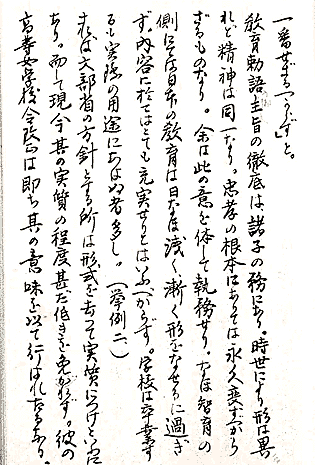 一番せざるべからず」と。
教育勅語主旨の徹底は、諸子の務にあり。時世により形は異
れど精神は同一なり。忠孝の根本にありては永久変すべから
ざるものなり。余は此の意を体して執務せり。なほ智育の
側にては日本の教育は日なほ浅く漸く形をなせるに過ぎ
ず。内容に於てはとても充実せりとはいふべからず。学校は卒業す
るも実際の用途にあはぬ者多し。(挙例二、)
されば文部省の方針とする所は形式を去つて実質につけといふに
あり。而して現今其の実質の程度甚だ低きを免がれず。彼の
高等女学校令改正は即ち其の意味を以て行はれたるなり。